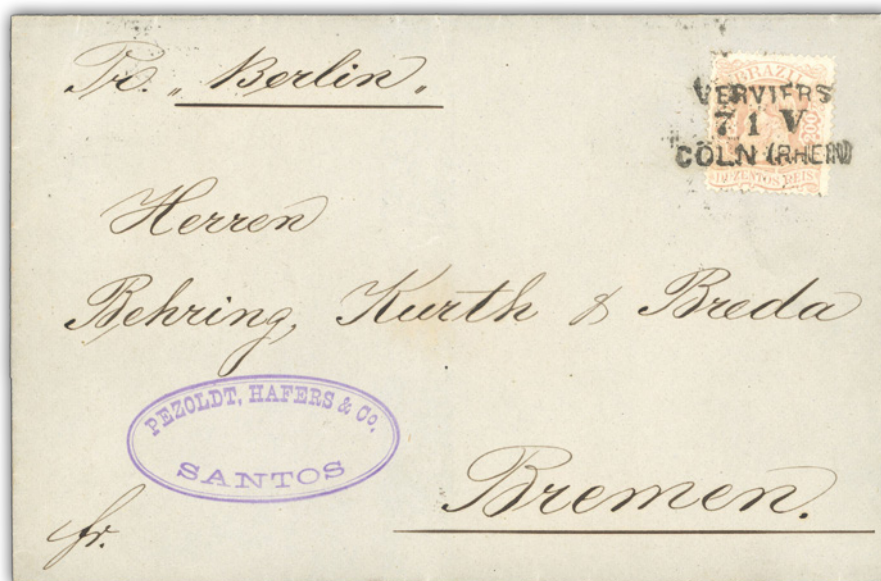 Pr. „Berlin„
BRAZIL
VERVIERS
7 1 V
CÖLN (RHEIN)
DUZENTOS REIS
Herren
Behring, Kurth & Breda
PEZOLDT, HAFERS & Co.
SANTOS
Bremen.
fr.